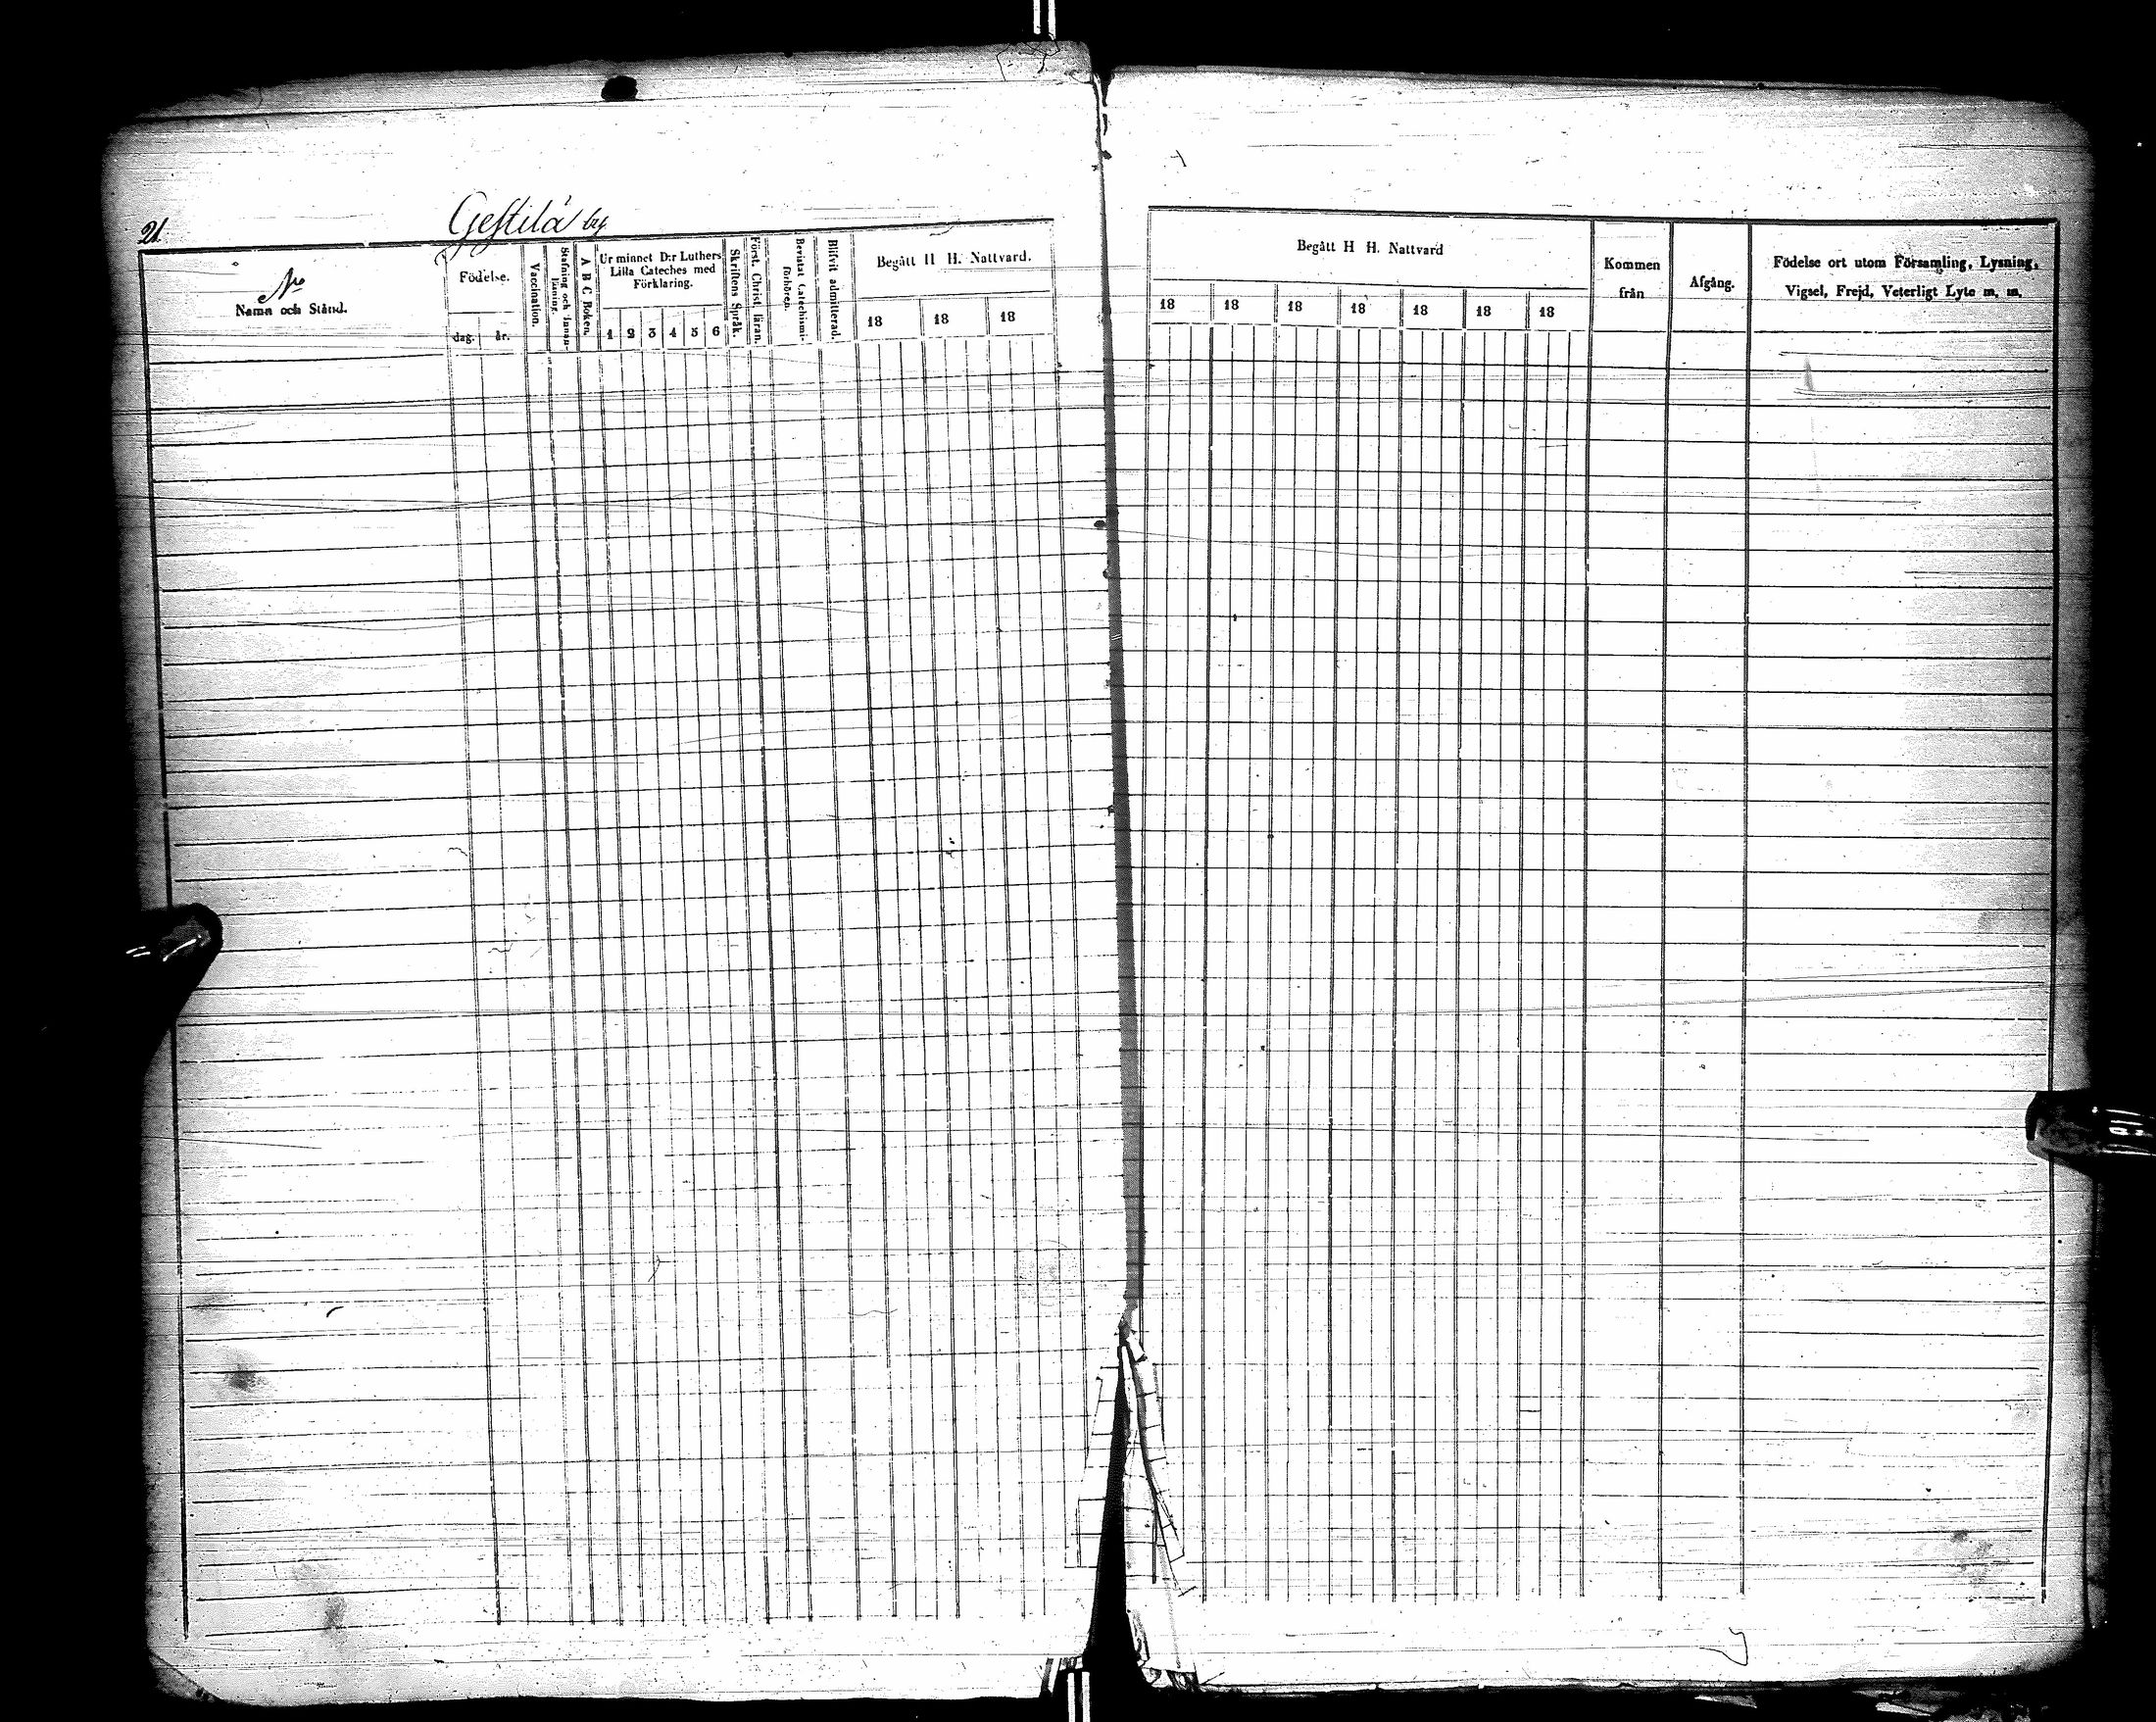 21.
Gestilä by.
No
Namn och Stånd.
Födelse.
dag. år.
Vaccination.
Stafning och Innan-
läsning.
A B C Boken.
Ur minnet D:r Luthers
Lilla Cateches med
Förklaring.
1 2 3 4 5 6
Skriftens Språk.
Först. Christ. läran.
Bevistat Catechismi-
förhören.
Blifvit admitterad.
Begått H H. Nattvard.
18 18 18
Begått H H. Nattvard
18 18 18 18 18 18 18
Kommen
från
Afgång.
Födelse ort utom Församling, Lysning,
Vigsel, Frejd, Veterligt Lyte m. m.